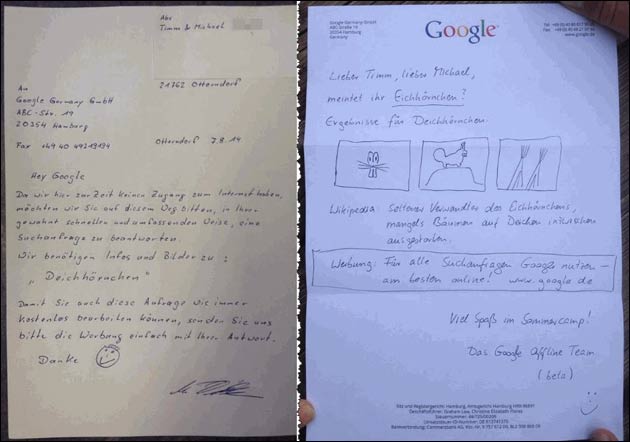 Abs
Timm & Michael
21762 Otterndorf
An
Google Germany GmbH
ABC-Str. 19
20354 Hamburg
Fax +49 40 49219194
Otterndorf 7.8.14
Hey Google
Da wir hier zur Zeit keinen Zugang zum Internet haben,
möchten wir Sie auf diesem Weg bitten, in Ihrer
gewohnt schnellen und umfassenden Weise, eine
Suchanfrage zu beantworten.
Wir benötigen Infos und Bilder zu:
"Deichhörnchen"
Damit Sie auch diese Anfrage wie immer
kostenlos bearbeiten können, senden Sie uns
bitte die Werbung einfach mit Ihrer Antwort.
Danke
Google Germany GmbH
ABC-Straße 19
20354 Hamburg
Germany
Google
www.google.de
Lieber Timm, lieber Michael,
meintet ihr Eichhörnchen?
Ergebnisse für Deichhörnchen:
Wikipedia: Seltener Verwandter des Eichhörnchens,
mangels Bäumen auf Deichen inzwischen
ausgestorben.
Werbung: Für alle Suchanfragen Google nutzen –
am besten online! www.google.de
Viel Spaß im Sommercamp!
Das Google Offline Team
(beta)
Sitz und Registergericht: Hamburg, Amtsgericht Hamburg HRB
Geschäftsführer: Graham Law, Christine Elizabeth Flores